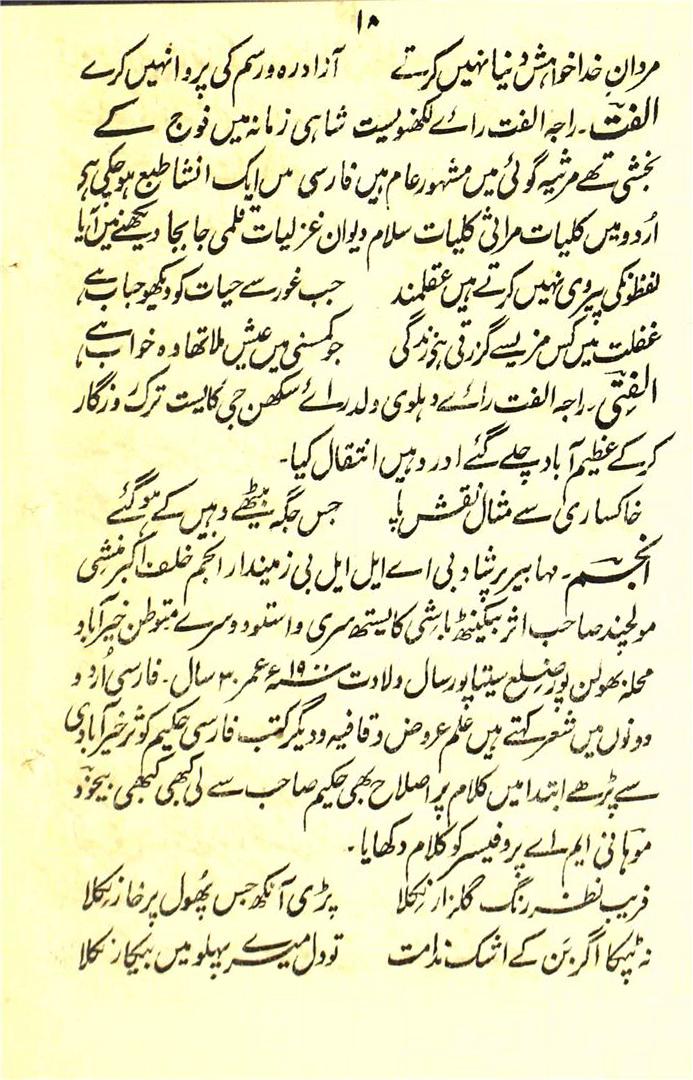 ۱۸
مردانِ خدا خواہشِ دنیا نہیں کرتے آزاد رہ و رسم کی پروا نہیں کرے
الفتؔ۔ راجہ الفت رائے لکھنوی ست شاہی زمانہ میں فوج کے
بخشی تھے مرثیہ گوئی میں مشہور عام ہیں فارسی میں ایک انشا طبع ہو چکی ہی
اُردو میں کلیات مراثی کلیات سلام دیوان غزلیات قلمی جا بجا دیکھنے میں آیا
لفظونکی پیروی نہیں کرتے ہیں عقلمند جب غور سے حیات کو دیکھو حباب ہے
غفلت میں کس مزیسے گزرتی ہی زندگی جو کمسنی میں عیش ملا تھا وہ خواب ہے
الفتیؔ۔ راجہ الفت رائے دہلوی ولد رائے سکھن جی کایست ترک روزگار
کر کے عظیم آباد چلے گئے اور وہیں انتقال کیا۔
خاکساری سے مثال نقش پا جس جگہ بیٹھے وہیں کے ہو گئے
انجمؔ۔ مہابیر پرشاد بی اے ایل ایل بی زمیندار انجم خلف اکبر منشی
مولچند صاحب اثر بیکنٹھ باشی کایستھ سری واستو دوسرے متوطن خیرآباد
محلہ بھولن پور ضلع سیتاپور سال ولادت ۱۹۰۰ء عمر ۳۰ سال۔ فارسی اُردو
دونوں میں شعر کہتے ہیں علم عروض و قافیہ و دیگر کتب فارسی حکیم کوثر خیرآبادی
سے پڑھے ابتدا میں کلام پر اصلاح بھی حکیم صاحب سے لی کبھی کبھی بیخودؔ
موہانی ایم اے پروفیسر کو کلام دکھایا۔
فریب نظر رنگ گلزار نکلا پڑی آنکھ جس پھُول پر خار نکلا
نہ ٹپکا اگر بَن کے اشک ندامت تو دل میرے پہلو میں بیکار نکلا